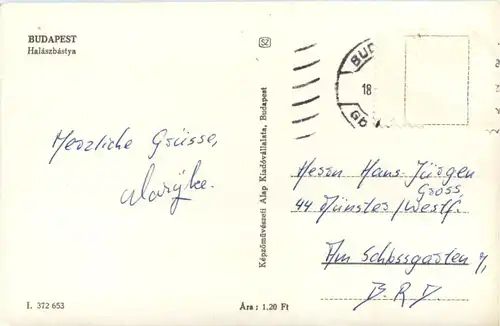 BUDAPEST
Halászbástya
Herzliche Grüsse,
Marijke.
I. 372 653
Ára: 1,20 Ft
Képzőművészeti Alap Kiadóvállalata, Budapest
SZ
BUD
18-
Herrn Hans-Jürgen
Gross,
44 Münster/Westf.
Am Schlossgarten
B.R.D.